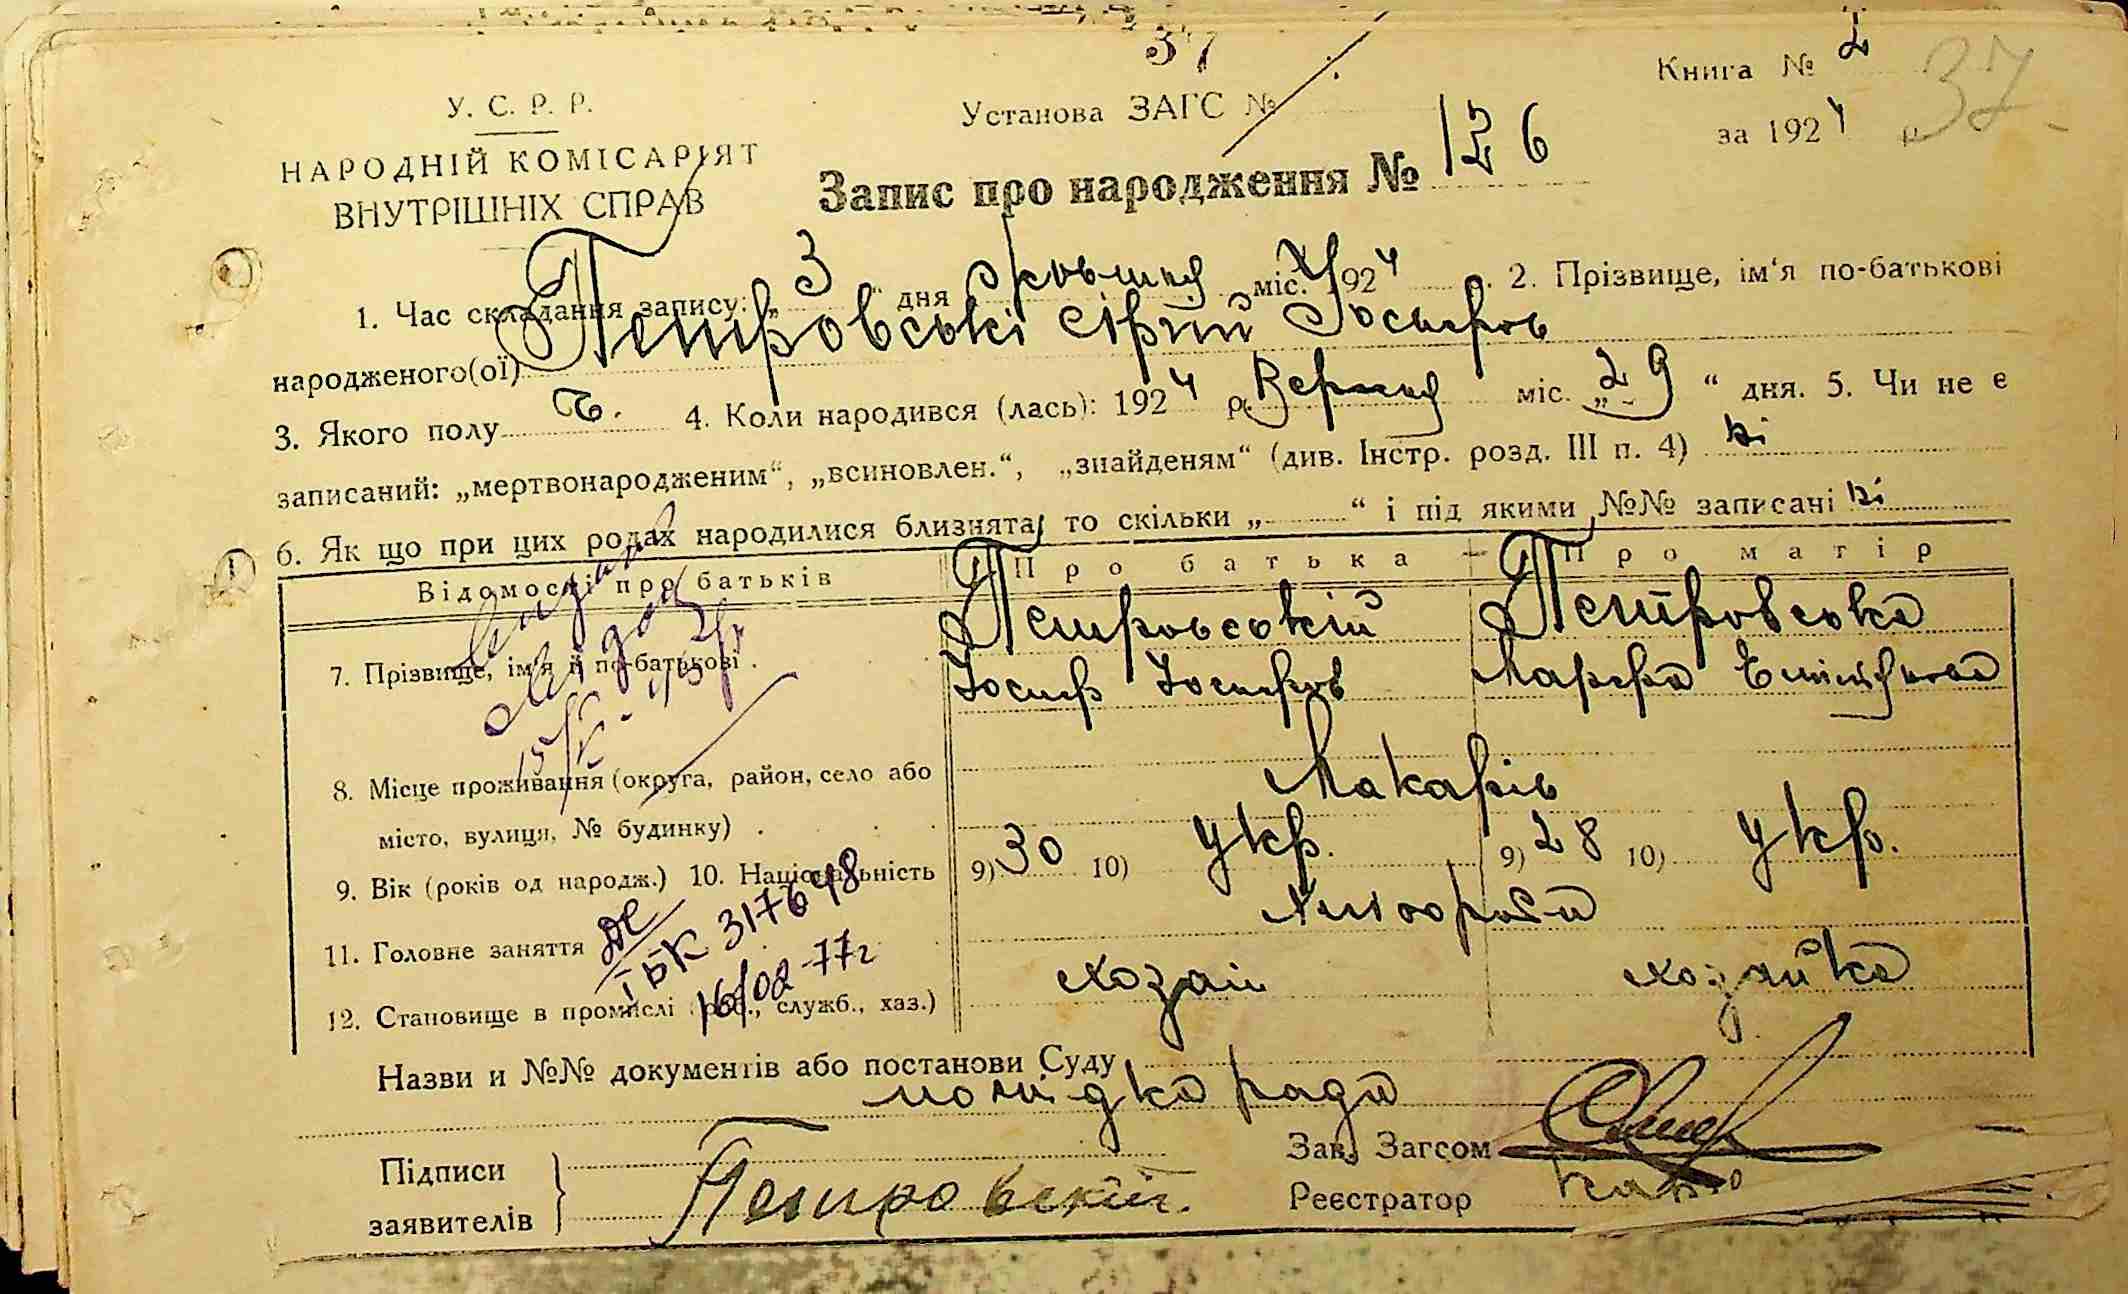 37
Книга № 2
37
У. С. Р. Р.
Установа ЗАГС №
за 1924
НАРОДНІЙ КОМІСАРІЯТ
ВНУТРІШНІХ СПРАВ
Запис про народження № 126
1. Час складання запису: „ 3 “ дня міс. 1924 р. 2. Прізвище, ім‘я по-батькові
народженого(ої) Петровські Юрій Йосипов
3. Якого полу ч. 4. Коли народився (лась): 1924 р. Вересня міс. „29“ дня. 5. Чи не є
записаний: „мертвонародженим“, „всиновлен.“, „знайденям“ (див. Інстр. розд. III п. 4) ні
6. Як що при цих родах народилися близнята, то скільки „ “ і під якими №№ записані ні
Відомості про батьків Про батька Про матір
Петровській Петровська
7. Прізвище, ім‘я й по-батькові .
Йосиф Йосифов Марфа
8. Місце проживання (округа, район, село або
Макарів
місто, вулиця, № будинку) .
9. Вік (років од народж.) 10. Національність 9) 30 10) укр. 9) 28 10) укр.
11. Головне заняття Хлібороби
ІБК 317648
16/02-77г
12. Становище в промислі (роб., служб., хаз.) хозяін хозяйка
Назви и №№ документів або постанови Суду
рада
Підписи
заявителів
Петровській.
Зав. Загсом
Реєстратор